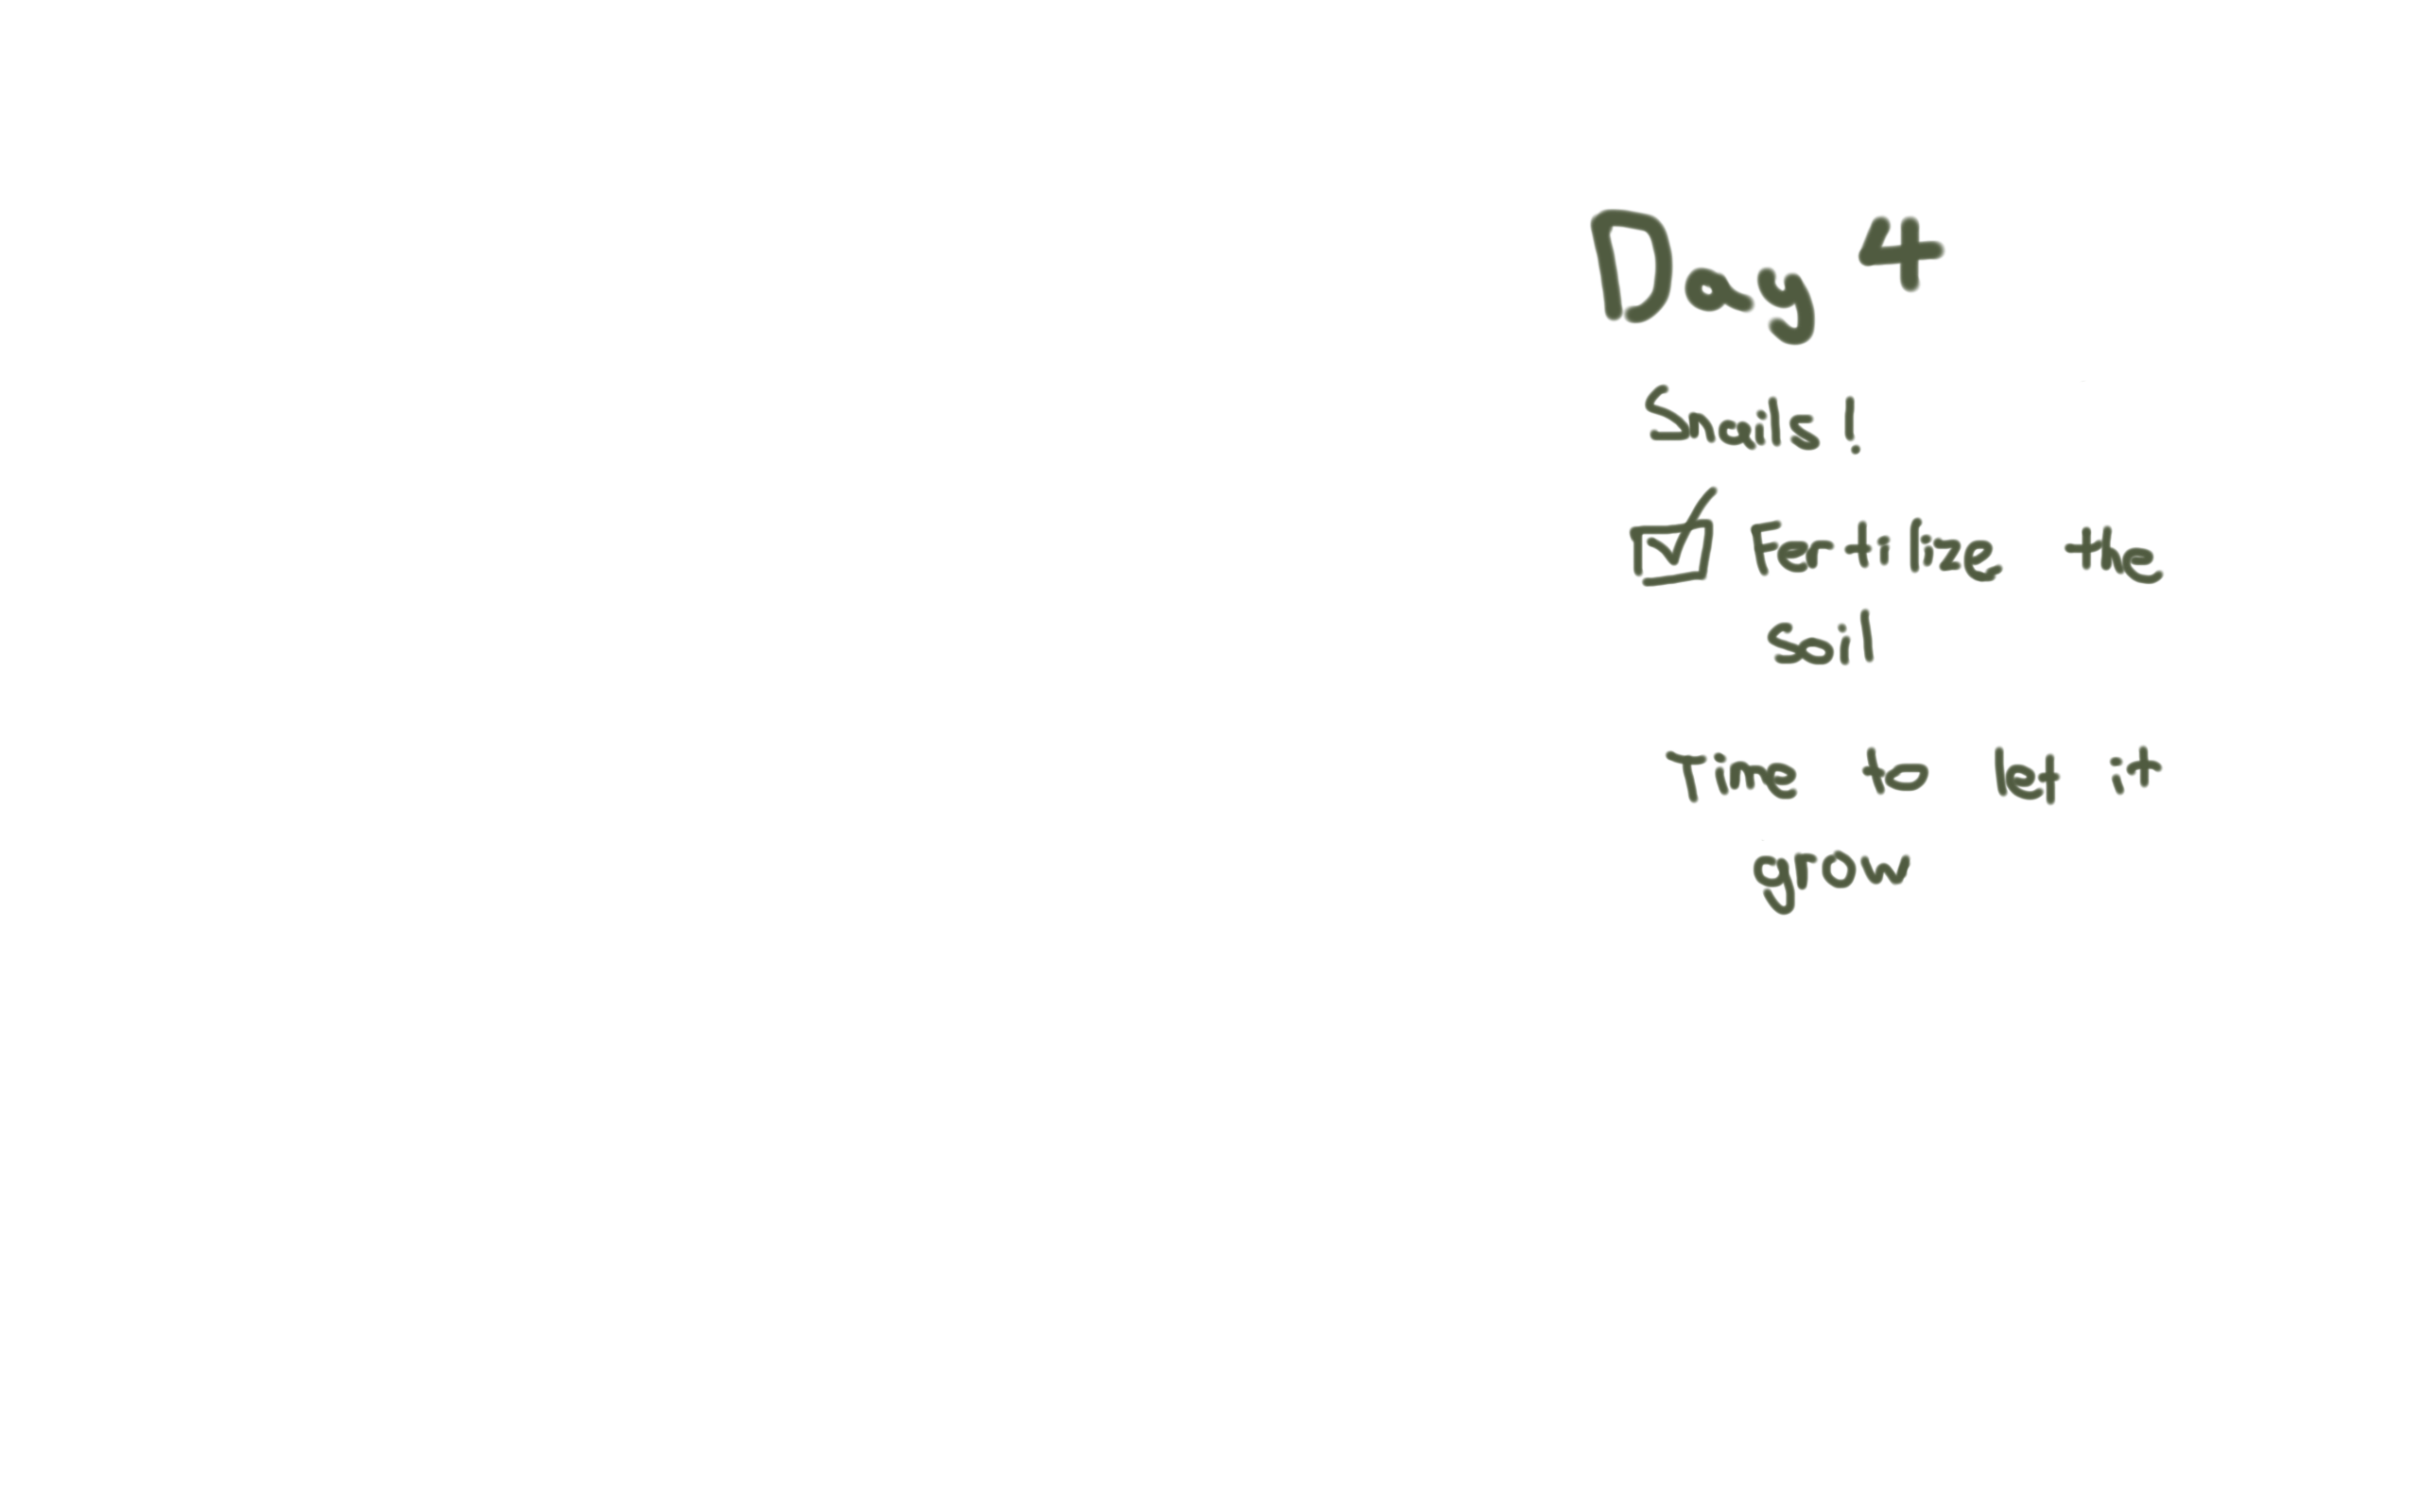 Day 4
Snails!
☑ Fertilize the
soil
Time to let it
grow